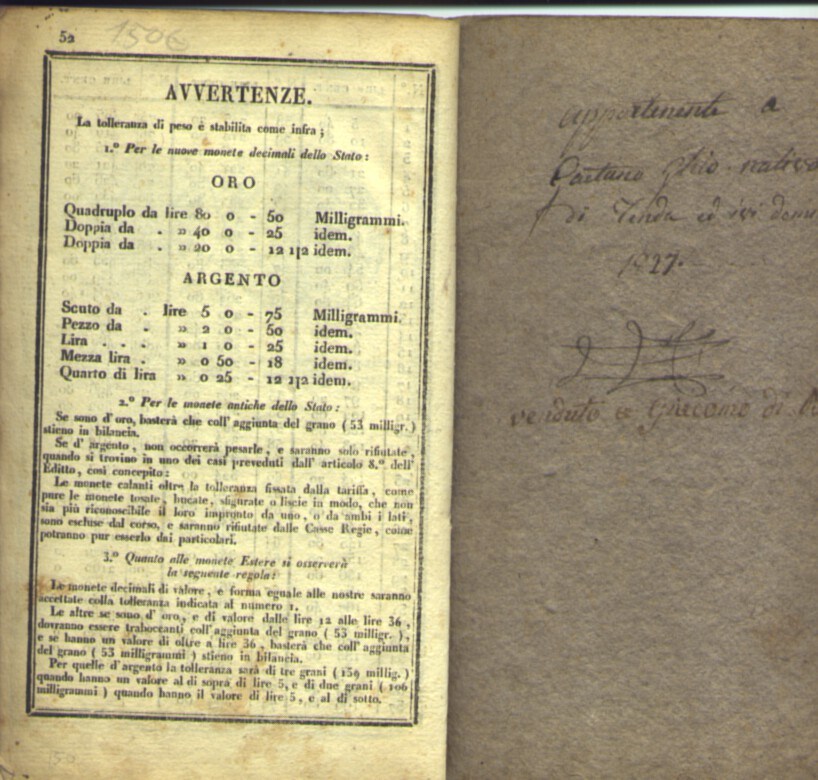 52
1506
AVVERTENZE.
La tolleranza di peso è stabilita come infra ;
1.º Per le nuove monete decimali dello Stato :
ORO
Quadruplo da lire 80 0 - 50 Milligrammi.
Doppia da . » 40 0 - 25 idem.
Doppia da . » 20 0 - 12 1|2 idem.
ARGENTO
Scuto da . lire 5 0 - 75 Milligrammi.
Pezzo da . » 2 0 - 50 idem.
Lira . . . » 1 0 - 25 idem.
Mezza lira . » 0 50 - 18 idem.
Quarto di lira » 0 25 - 12 1|2 idem.
2.º Per le monete antiche dello Stato :
Se sono d'oro, basterà che coll'aggiunta del grano ( 53 milligr. )
stieno in bilancia.
Se d'argento, non occorrerà pesarle, e saranno solo rifiutate,
quando si trovino in uno dei casi preveduti dall'articolo 8.º dell'
Editto, così concepito :
Le monete calanti oltre la tolleranza fissata dalla tariffa, come
pure le monete tosate, bucate, sfigurate o liscie in modo, che non
sia più riconoscibile il loro impronto da uno, o da ambi i lati,
sono escluse dal corso, e saranno rifiutate dalle Casse Regie, come
potranno pur esserlo dai particolari.
3.º Quanto alle monete Estere si osserverà
la seguente regola :
Le monete decimali di valore, e forma eguale alle nostre saranno
accettate colla tolleranza indicata al numero 1.
Le altre se sono d'oro, e di valore dalle lire 12 alle lire 36,
dovranno essere traboccanti coll'aggiunta del grano ( 53 milligr. ),
e se hanno un valore di oltre a lire 36, basterà che coll'aggiunta
del grano ( 53 milligrammi ) stieno in bilancia.
Per quelle d'argento la tolleranza sarà di tre grani ( 159 millig. )
quando hanno un valore al di sopra di lire 5, e di due grani ( 106
milligrammi ) quando hanno il valore di lire 5, e al di sotto.
appartenente a
Gaetano Ghio nativo
di Tenda ed ivi
1827.
venduto a Giacomo di